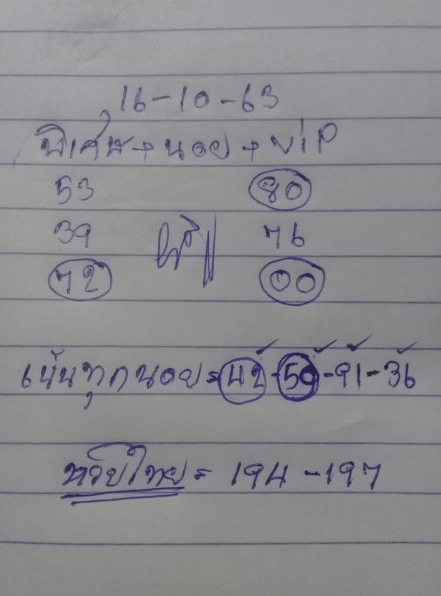 16-10-63
พิเศษ+นอย+VIP
53 80
39 76
72 00
เน้นทุกนอย=42-50-91-36
หวยไทย= 194-197